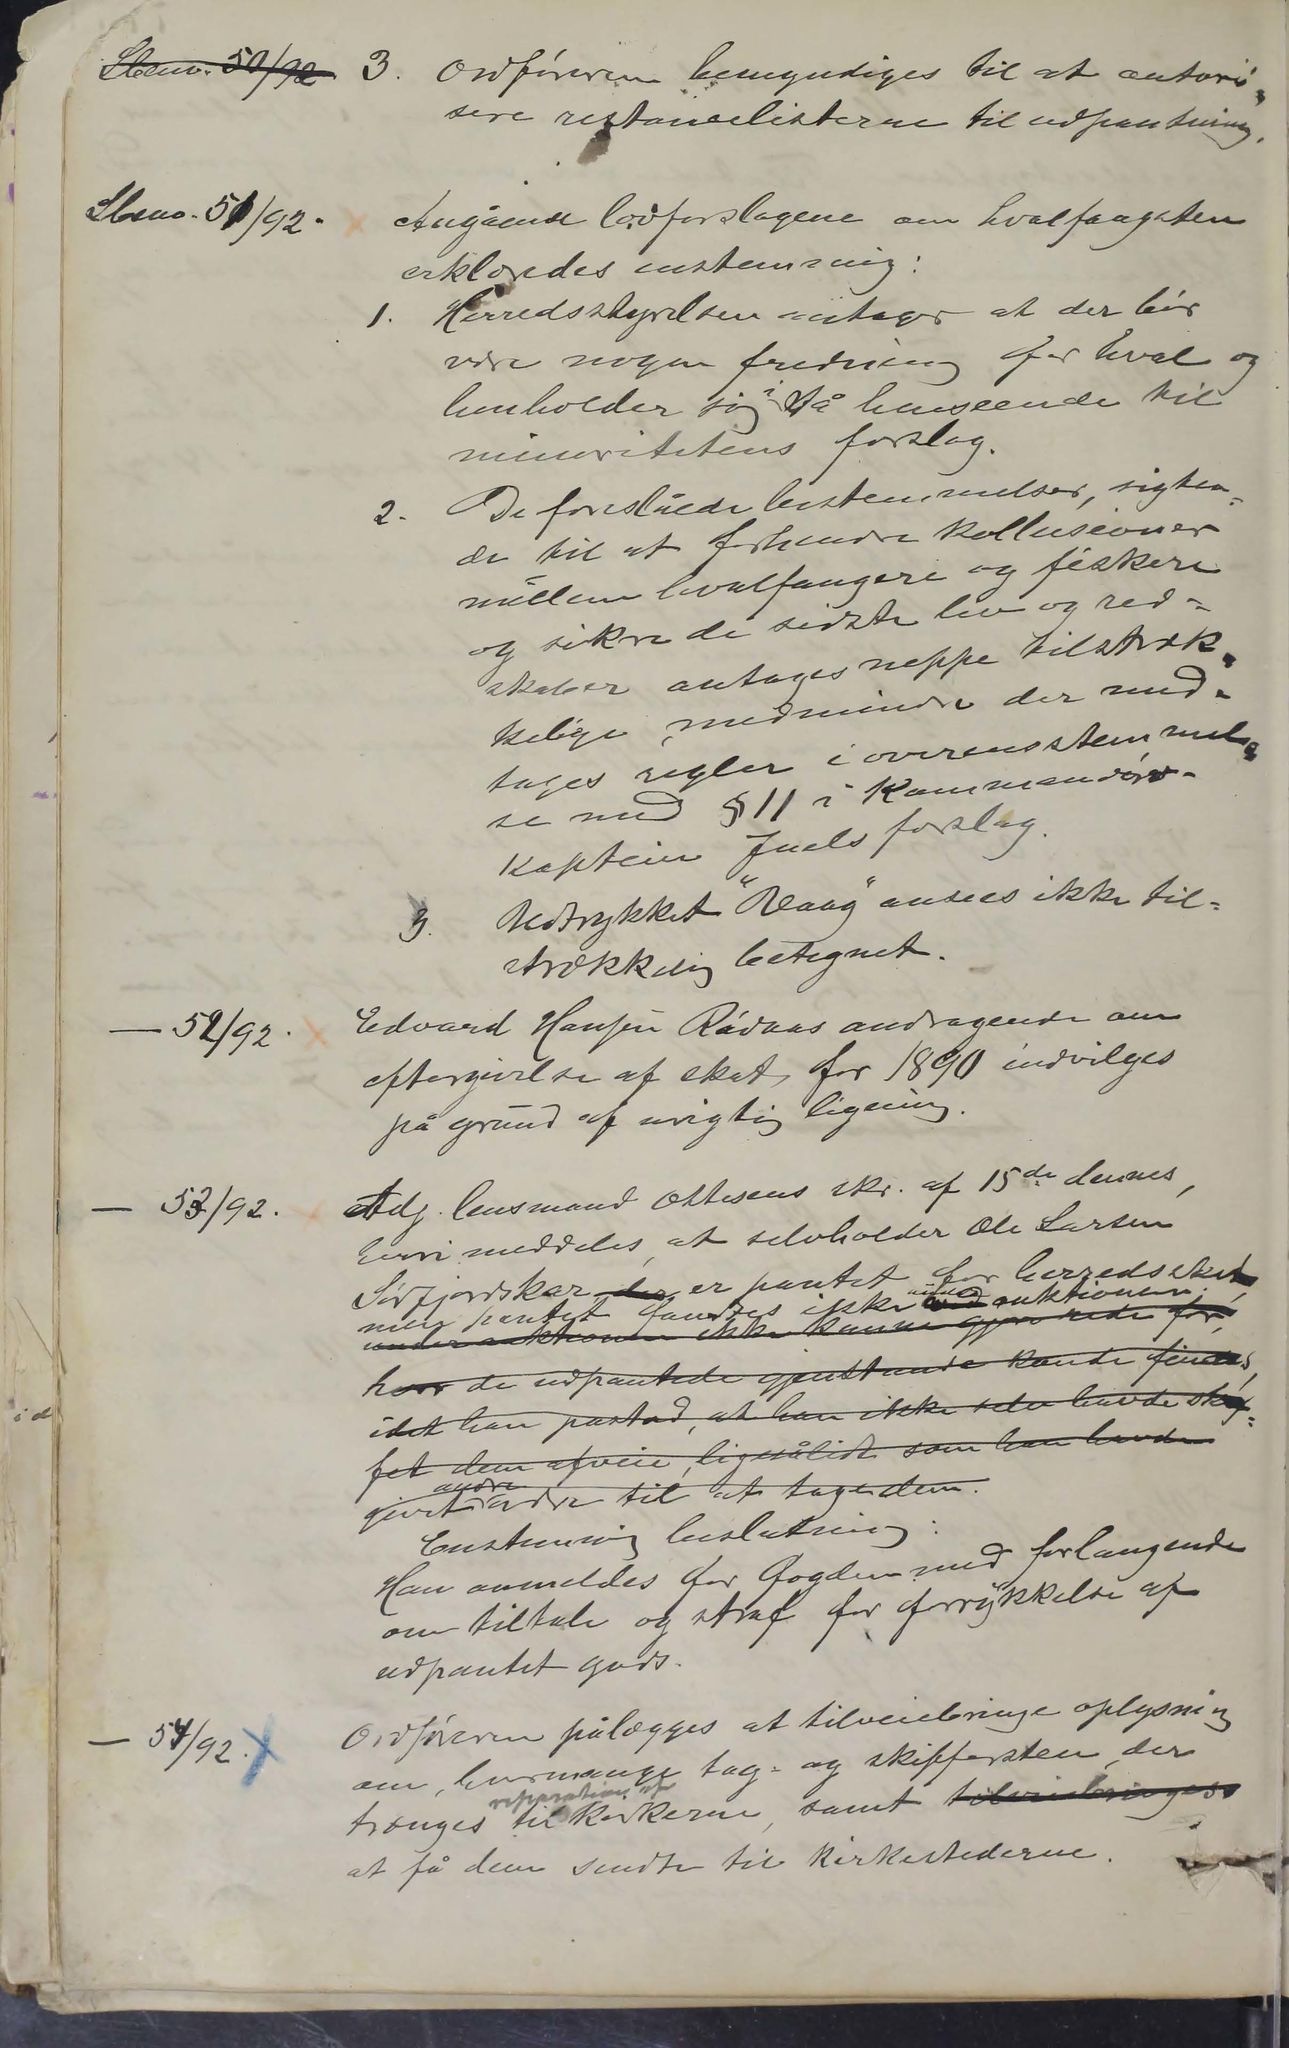 Sbno. 50/92 3. Ordføreren bemyndiges til at autori-
sere restancelisterne til udpantning.
Sbno. 51/92. Angående lovforslagene om hvalfangsten
erklæredes enstemmig:
1. Herredsstyrelsen antager at der bør
være nogen fredning for hval og
henholder sig i så henseende til
minoritetens forslag.
2. De foreslåede bestemmelser, sigten-
de til at forhindre kollusioner
mellem hvalfangere og fiskere
og sikre de sidste liv og red-
skaber antages neppe tilstræk-
kelige, medmindre der med-
tages regler i overensstemmel-
se med § 11 i Kommandør-
kaptein Juels forslag.
3. Udtrykket "Vaag" ansees ikke til-
strækkelig betegnet.
— 52/92. Edvard Hansen Rødaas andragende om
eftergivelse af skat for 1890 indvilges
på grund af urigtig ligning.
— 53/92. Adg. lensmand Ottesens skr. af 15de dennes,
hvori meddeles, at selvholder Ole Larsen
Sørfjordskar er pantet for herredsskat,
men pantet fandtes ikke under auktionen.
under auktionen ikke kunne gjøre rede for,
hvor de udpantede gjenstande kunde findes,
idet han påstod, at han ikke selv havde skaf-
fet dem afveie, ligesålidt som han havde
givet andre ordre til at tage dem.
Enstemmig beslutning:
Han anmeldes for Fogden med forlangende
om tiltale og straf for forrykkelse af
udpantet gods.
— 54/92. Ordføreren pålægges at tilveiebringe oplysning
om, hvormange tag- og skiffersten, der
trænges til reparation af kirkerne, samt tilveiebringes
at få dem sendte til kirkestederne.